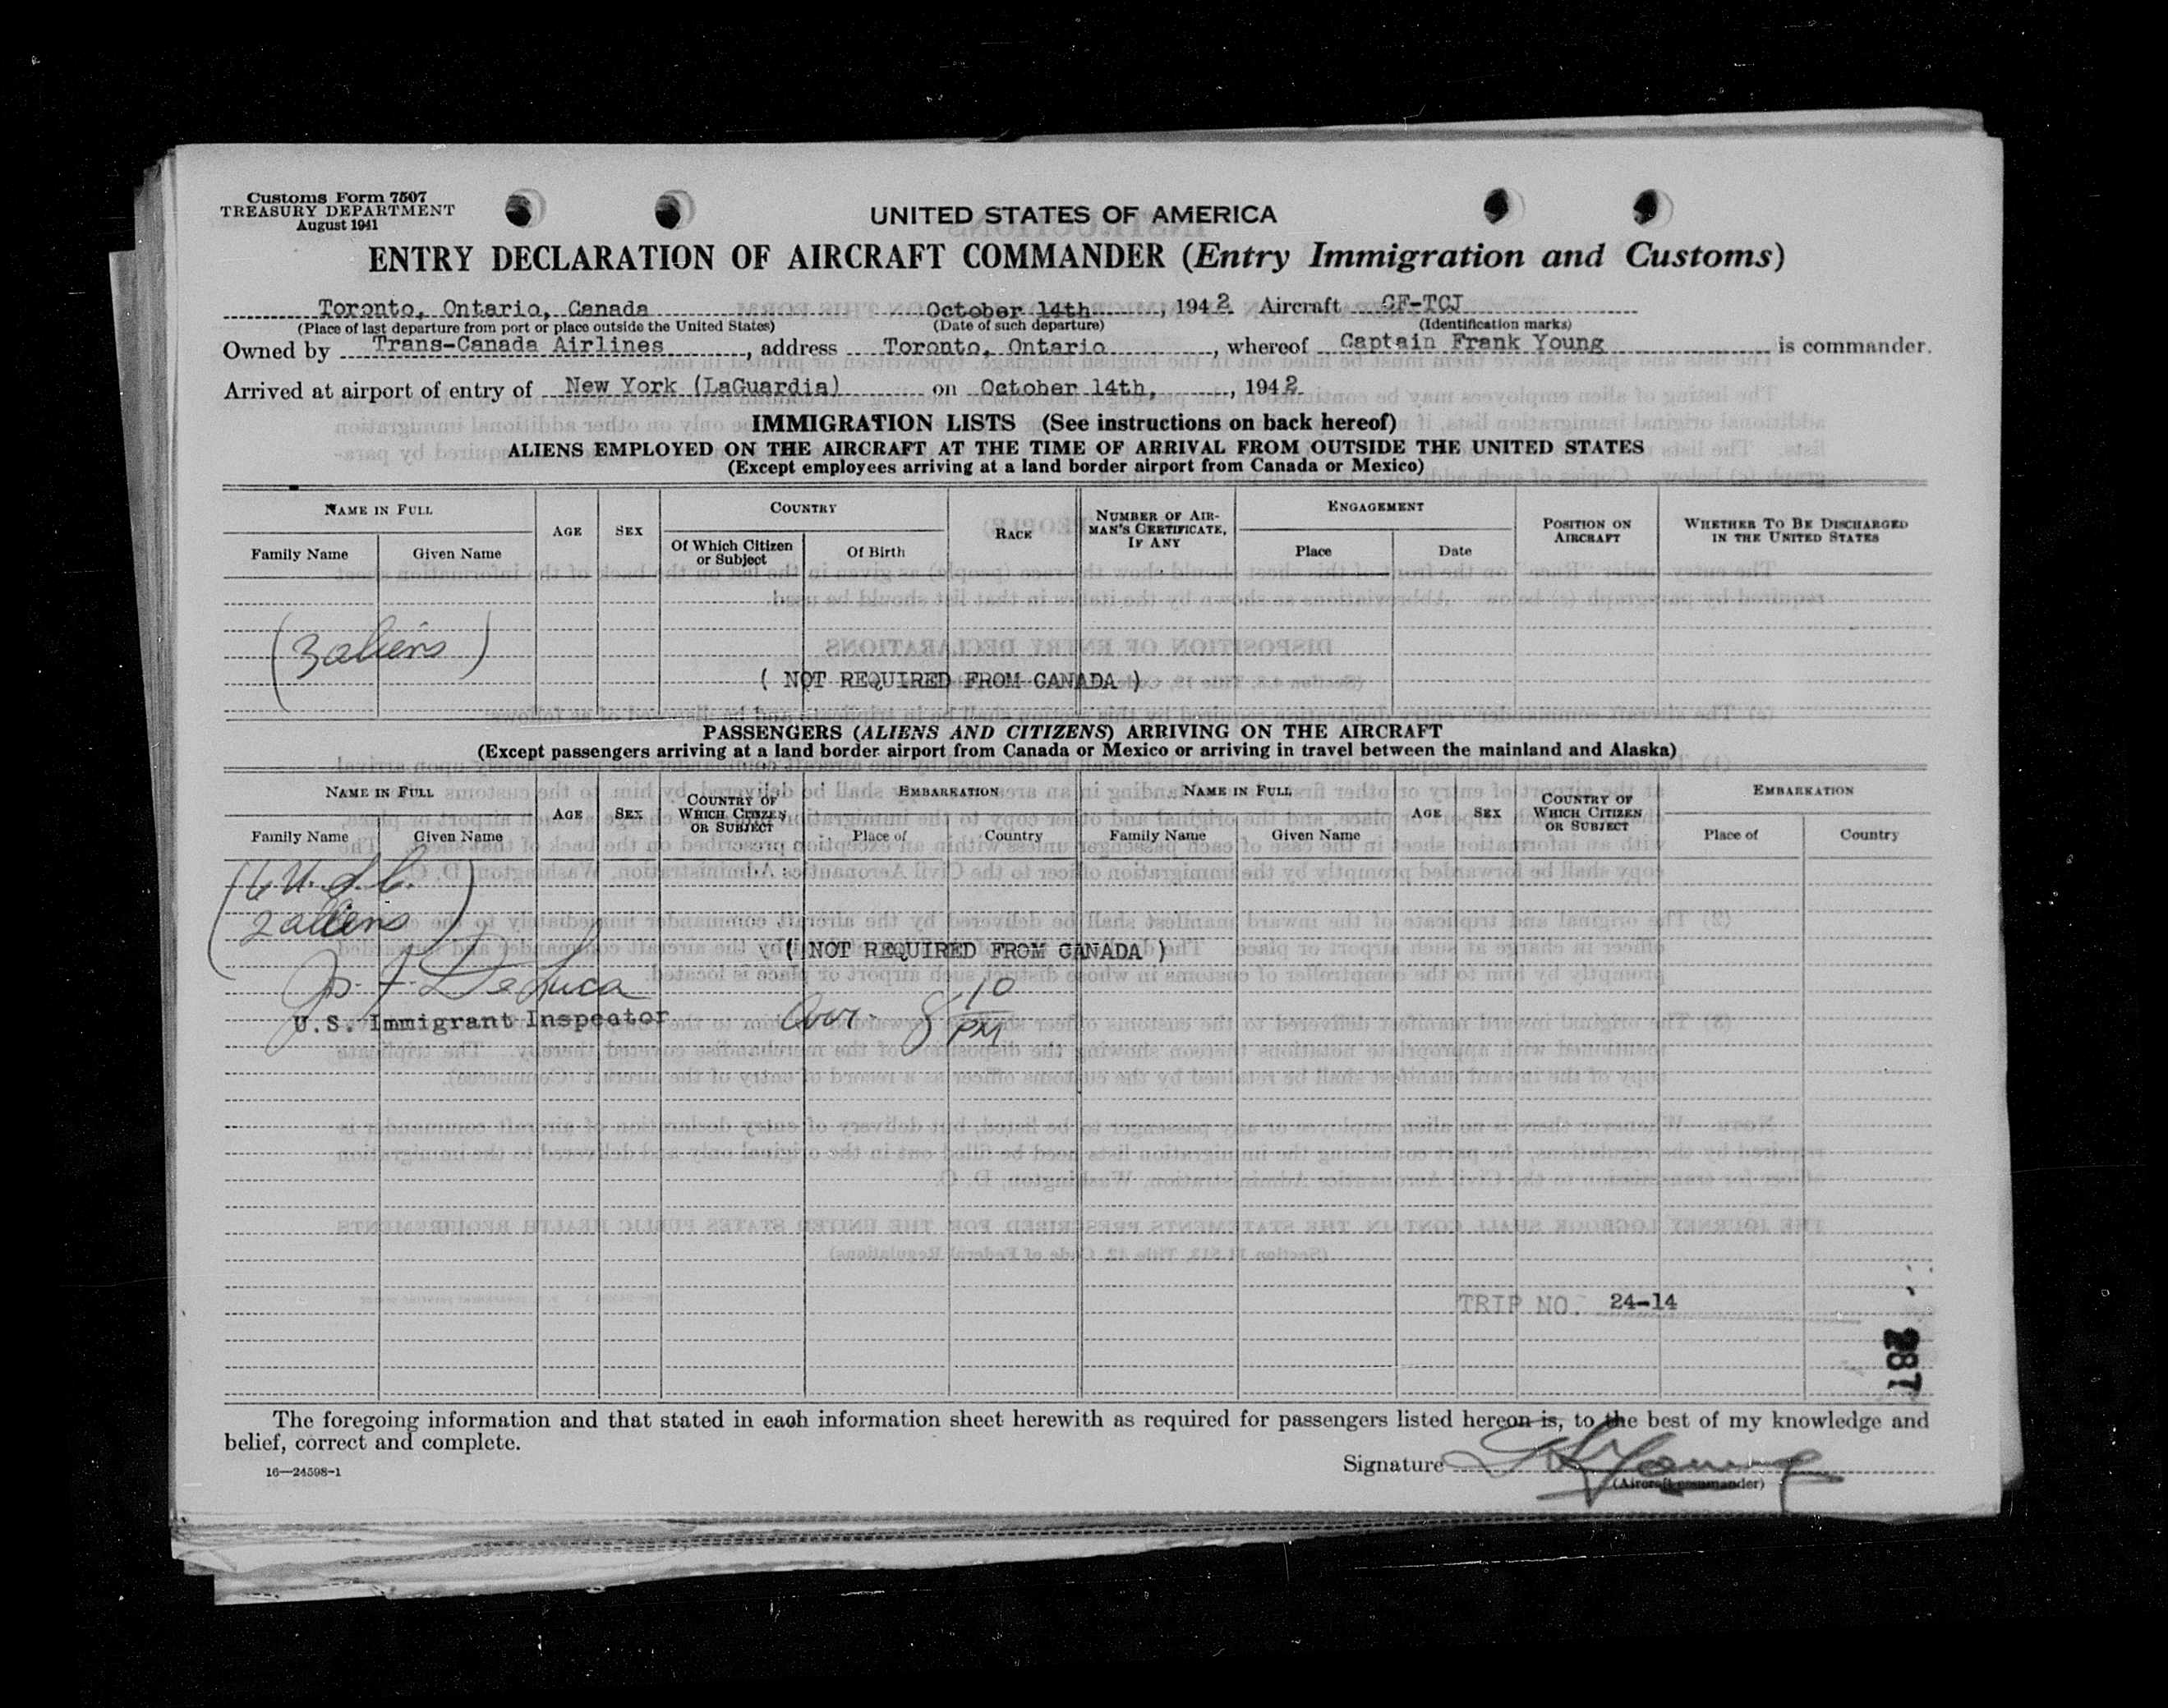 Customs Form 7507
TREASURY DEPARTMENT
August 1941
UNITED STATES OF AMERICA
ENTRY DECLARATION OF AIRCRAFT COMMANDER (Entry Immigration and Customs)
Toronto, Ontario, Canada October 14th, 1942 Aircraft CF-TCJ
(Place of last departure from port or place outside the United States) (Date of such departure) (Identification marks)
Owned by Trans-Canada Airlines, address Toronto, Ontario, whereof Captain Frank Young is commander.
Arrived at airport of entry of New York (LaGuardia) on October 14th, 1942
IMMIGRATION LISTS (See instructions on back hereof)
ALIENS EMPLOYED ON THE AIRCRAFT AT THE TIME OF ARRIVAL FROM OUTSIDE THE UNITED STATES
(Except employees arriving at a land border airport from Canada or Mexico)
NAME IN FULL AGE SEX COUNTRY RACE NUMBER OF AIRMAN'S CERTIFICATE, IF ANY ENGAGEMENT POSITION ON AIRCRAFT WHETHER TO BE DISCHARGED IN THE UNITED STATES
Family Name Given Name Of Which Citizen or Subject Of Birth Place Date
(3 aliens)
( NOT REQUIRED FROM CANADA )
PASSENGERS (ALIENS AND CITIZENS) ARRIVING ON THE AIRCRAFT
(Except passengers arriving at a land border airport from Canada or Mexico or arriving in travel between the mainland and Alaska)
NAME IN FULL AGE SEX COUNTRY OF WHICH CITIZEN OR SUBJECT EMBARKATION NAME IN FULL AGE SEX COUNTRY OF WHICH CITIZEN OR SUBJECT EMBARKATION
Family Name Given Name Place of Country Family Name Given Name Place of Country
(6 U.S.C.
2 aliens)
( NOT REQUIRED FROM CANADA )
De Luca
U.S. Immigrant Inspector
8 10 PM
TRIP NO. 24-14
287
The foregoing information and that stated in each information sheet herewith as required for passengers listed hereon is, to the best of my knowledge and
belief, correct and complete.
16—24598-1
Signature Young
(Aircraft commander)